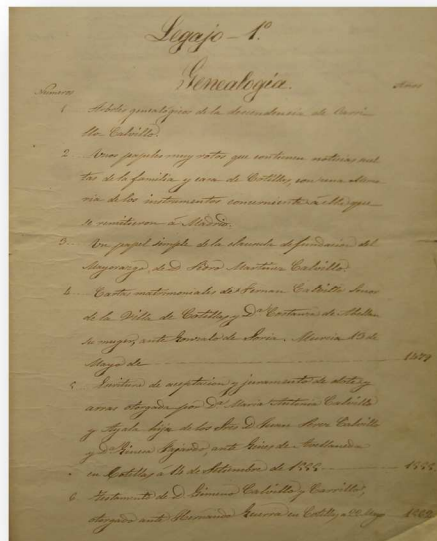 Legajo - 1º
Genealogía.
Numeros Años
1 Arboles genealógicos de la descendencia de Carri
llo Calvillo.
2 Unos papeles muy rotos que contienen noticias suel
tas de la familia y casa de Cotillas, con una memo
ria de los instrumentos concernientes a ella que
se remitieron á Madrid.
3 Un papel simple de la clausula de fundacion del
Mayorazgo de D. Pedro Martinez Calvillo.
4 Cartas matrimoniales de Fernan Calvillo Señor
de la Villa de Cotillas, y Dª Costanza de
su muger, ante Gonzalo de Soria. Murcia 13 de
Mayo de
5 Escritura de aceptacion y juramento de dote y
arras otorgada por Dª Maria Antonia Calvillo
y Ayala hija de los Sres D. Juan Calvillo
y Dª Ginesa Fajardo, ante Gines de Avellaneda
en Cotillas a 14 de Setiembre de
6 Testamento de D. Gimena Calvillo y Carrillo,
otorgado ante Hernando Guerra en Cotillas a Mayo